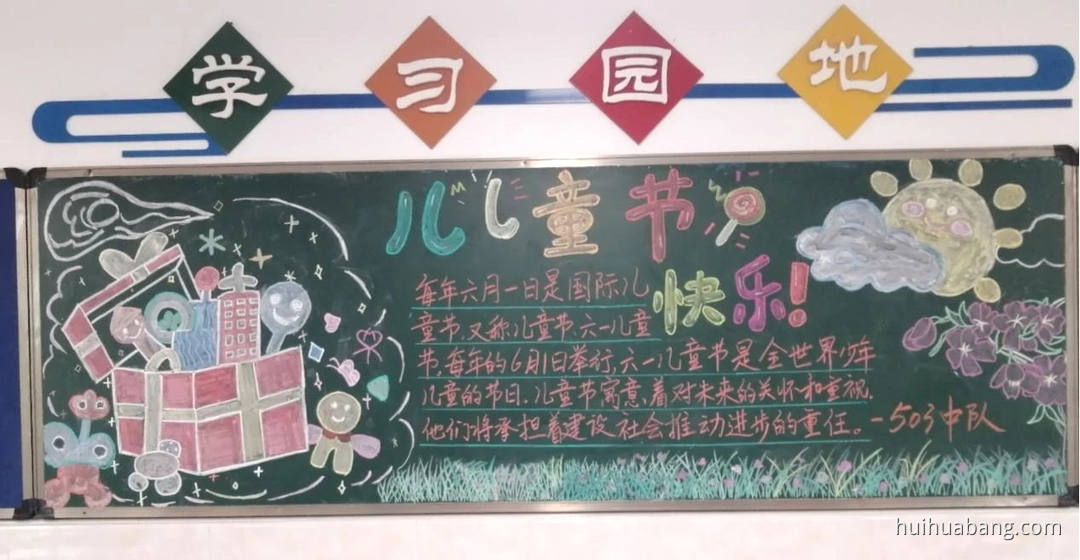 学习园地
儿童节
快乐!
每年六月一日是国际儿
童节,又称儿童节、六一儿童
节,每年的6月1日举行,六一儿童节是全世界少年
儿童的节日.儿童节寓意着对未来的关怀和重视.
他们将承担着建设社会推动进步的重任。-503中队
huihuabang.com